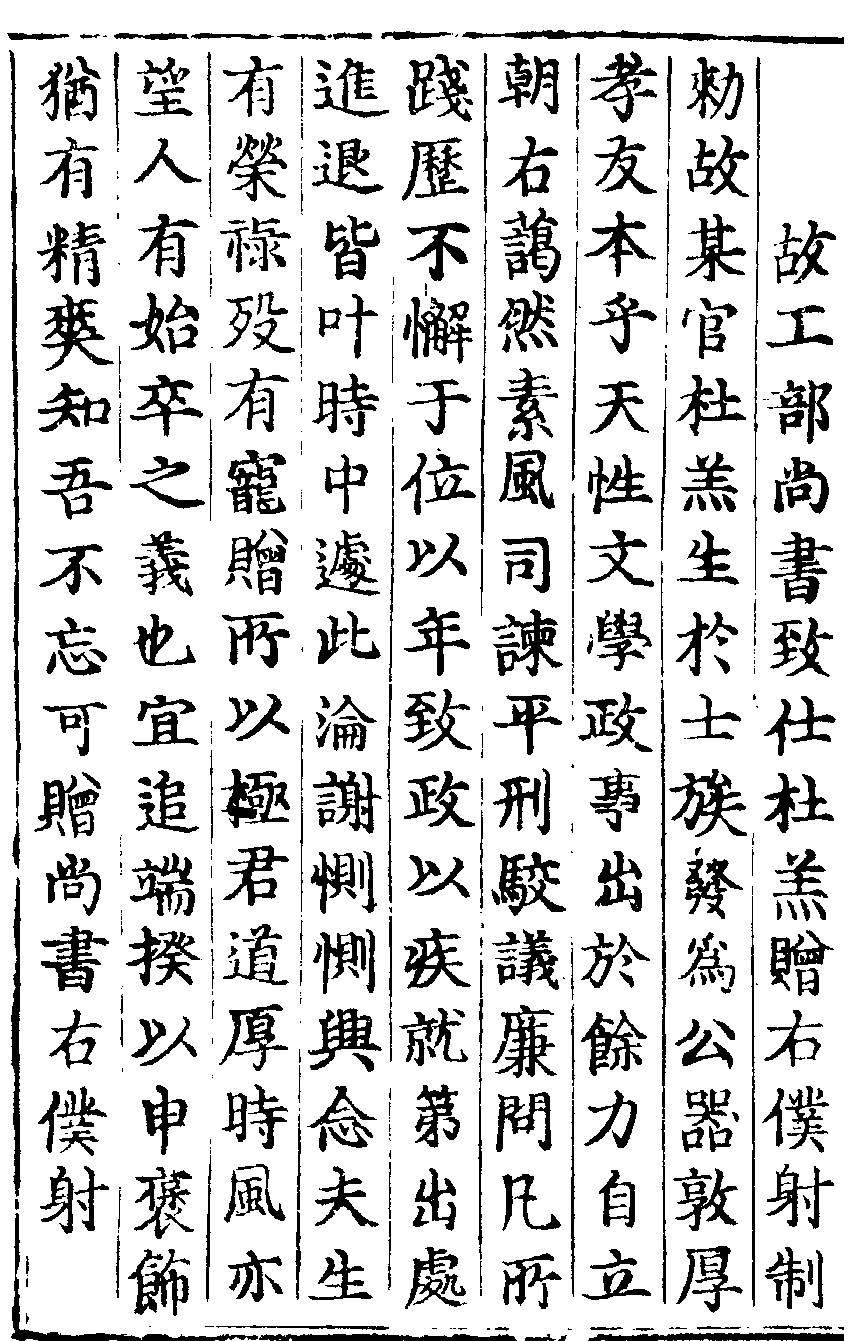 故工部尚書致仕杜羔贈右僕射制
勑故某官杜羔生於士族發爲公器敦厚
孝友本乎天性文學政事出於餘力自立
朝右藹然素風司諫平刑駮議廉問凡所
踐歷不懈于位以年致政以疾就第出處
進退皆叶時中遽此淪謝惻惻興念夫生
有榮祿歿有寵贈所以極君道厚時風亦
望人有始卒之義也宜追端揆以申褒飾
猶有精爽知吾不忘可贈尚書右僕射